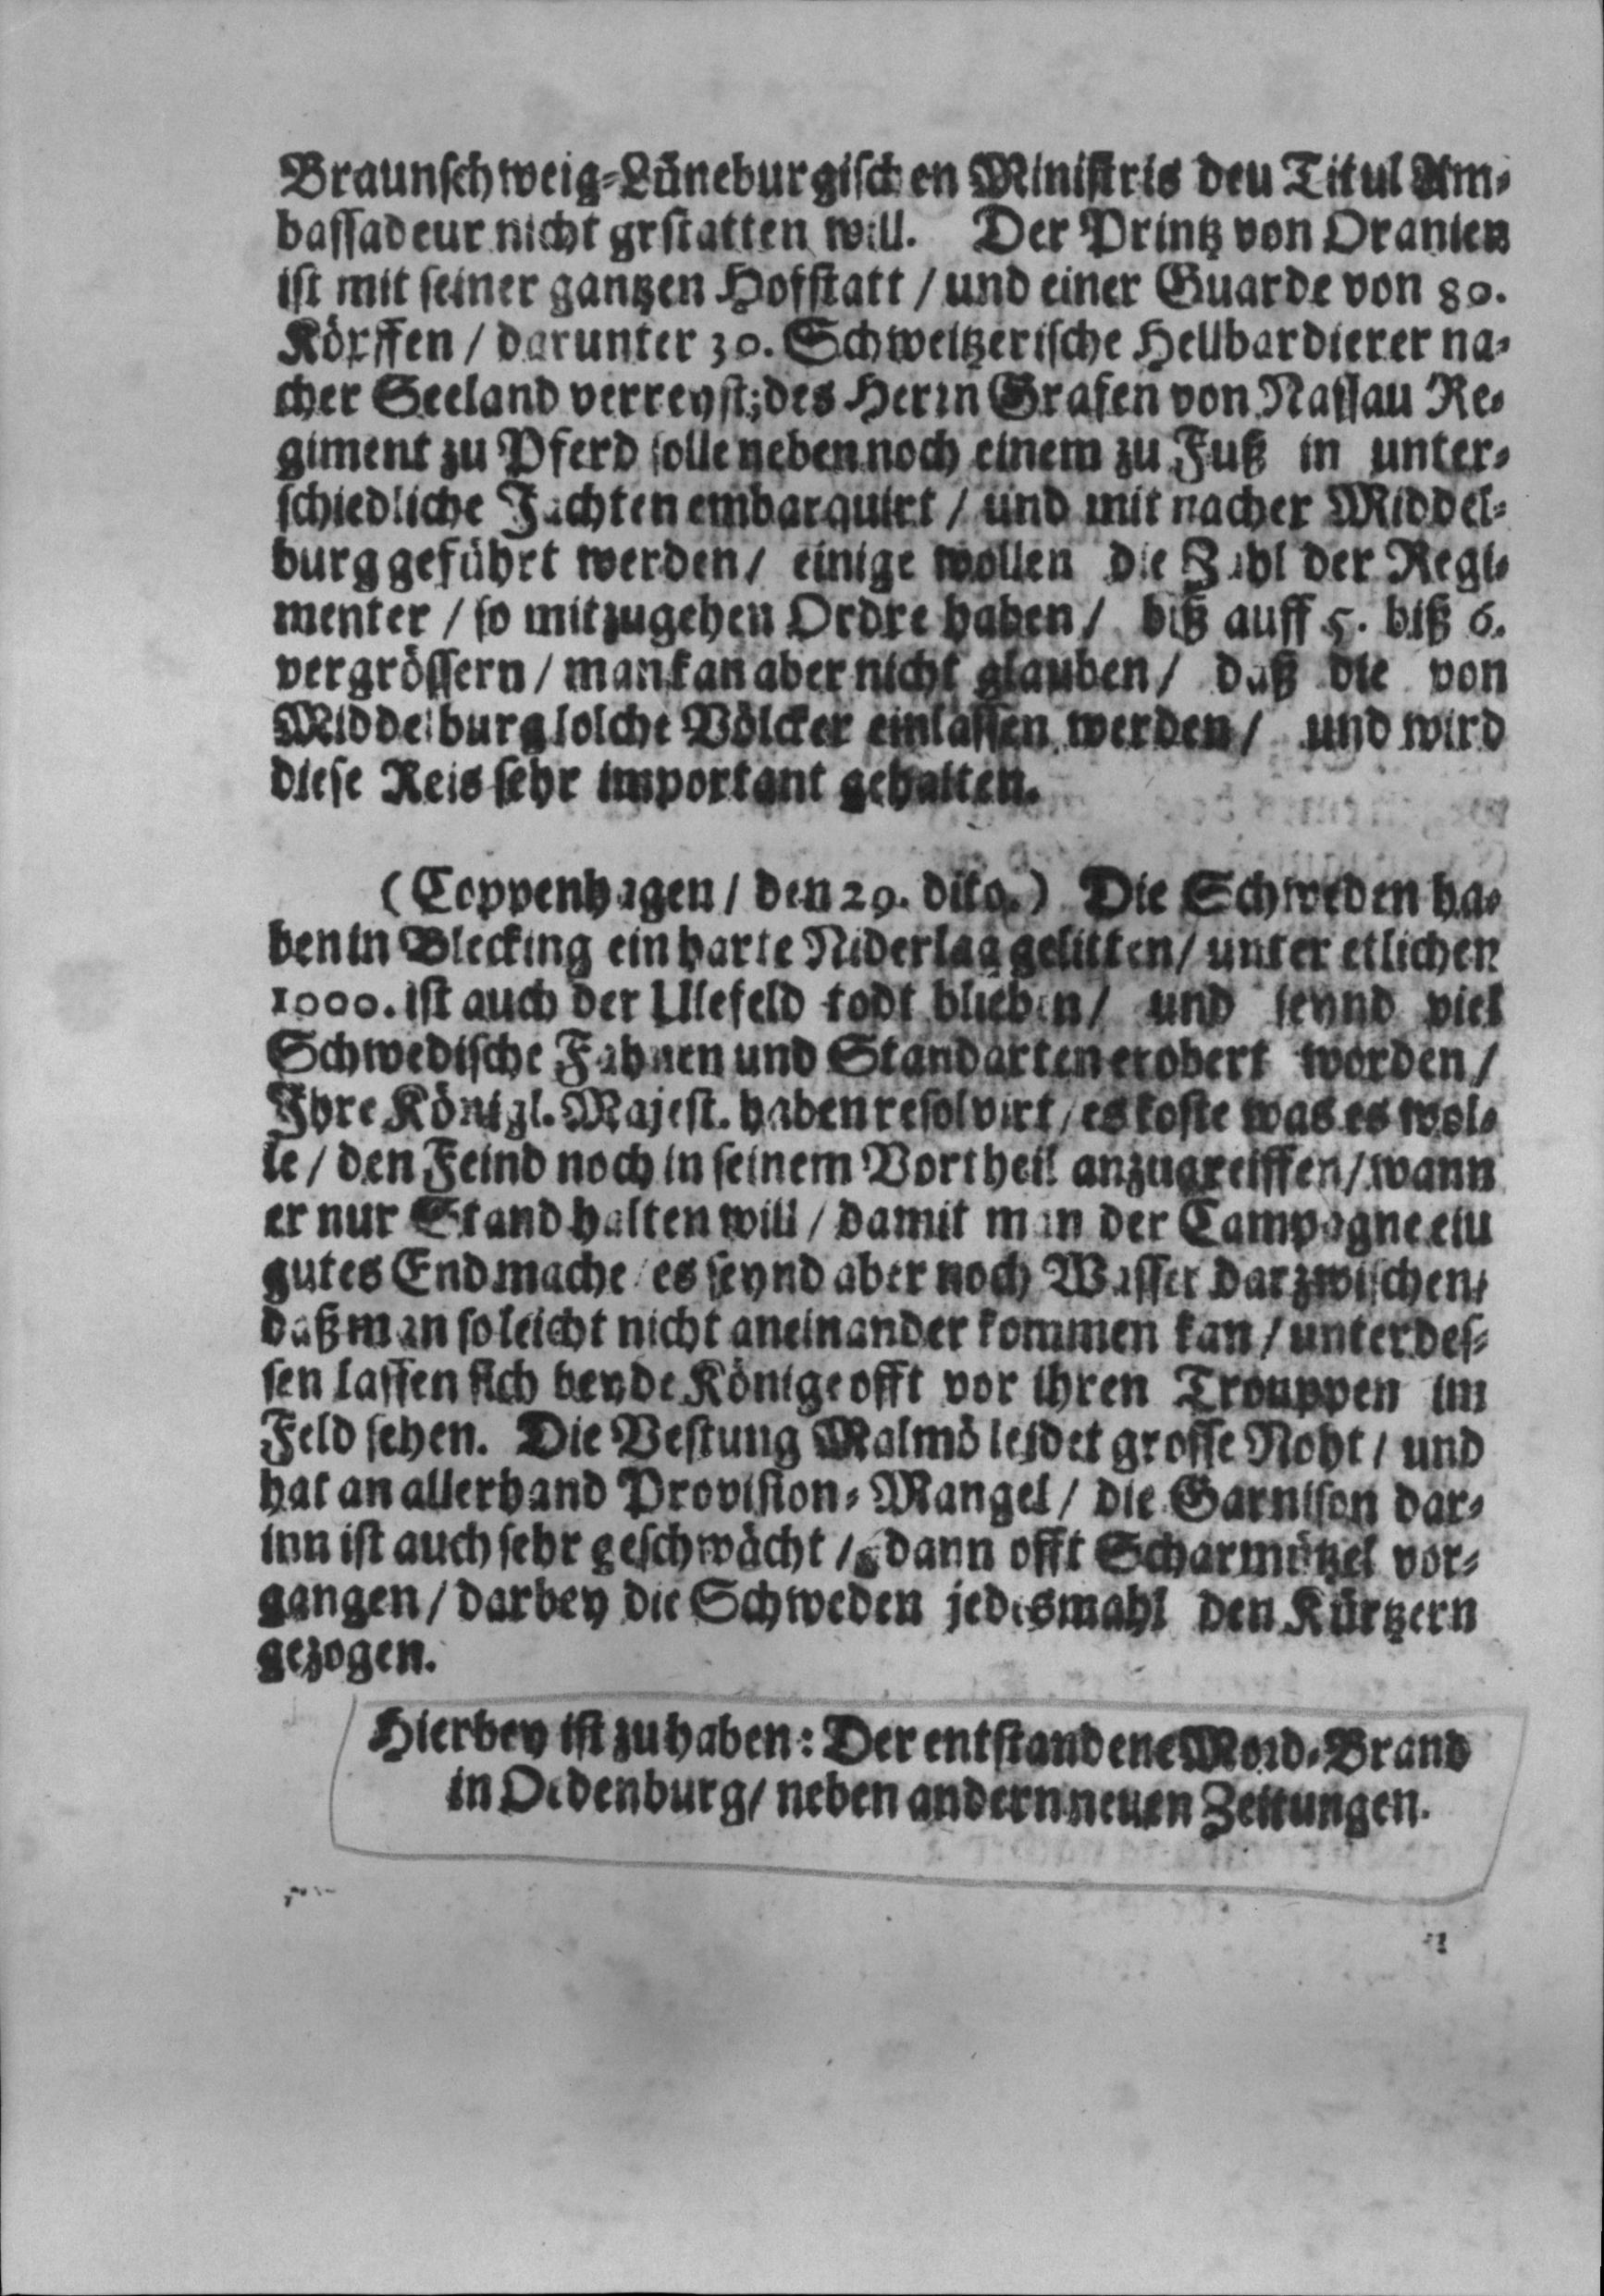 Braunschweig-Lüneburgischen Ministris deu Titul Am-
bassadeur nicht grstatten will. Der Printz von Oranien
ist mit seiner gantzen Hofstatt / und einer Guarde von 80.
Körffen / darunter 30. Schweitzerische Hellbardierer na-
cher Seeland verreyst; des Herrn Grafen von Nassau Re-
giment zu Pferd solle neben noch einem zu Fuß in unter-
schiedliche Jachten embarquirt / und mit nacher Middel-
burg geführt werden / einige wollen die Zahl der Regi-
menter / so mitzugehen Ordre haben / biß auff 5. biß 6.
vergrössern / man kan aber nicht glauben / daß die von
Middelburg solche Völcker einlassen werden / und wird
diese Reis sehr important gehalten.

(Coppenhagen / den 29. dito.) Die Schweden ha-
ben in Blecking ein harte Niderlag gelitten / unter etlichen
1000. ist auch der Ulefeld todt blieben / und seynd viel
Schwedische Fahnen und Standarten erobert worden /
Ihre Königl. Majest. haben resolvirt / es koste was es wol-
le / den Feind noch in seinem Vortheil anzugreiffen / wann
er nur Stand halten will / damit man der Campagne eiu
gutes End mache / es seynd aber noch Wasser darzwischen /
daß man so leicht nicht aneinander kommen kan / unterdes-
sen lassen sich beyde Könige offt vor ihren Trouppen im
Feld sehen. Die Vestung Malmö leidet grosse Noht / und
hat an allerhand Provision-Mangel / die Garnison dar-
inn ist auch sehr geschwächt / dann offt Scharmützel vor-
gangen / darbey die Schweden jedesmahl den Kürtzern
gezogen.

Hierbey ist zu haben: Der entstandene Mord-Brand
in Oldenburg / neben andern neuen Zeitungen.